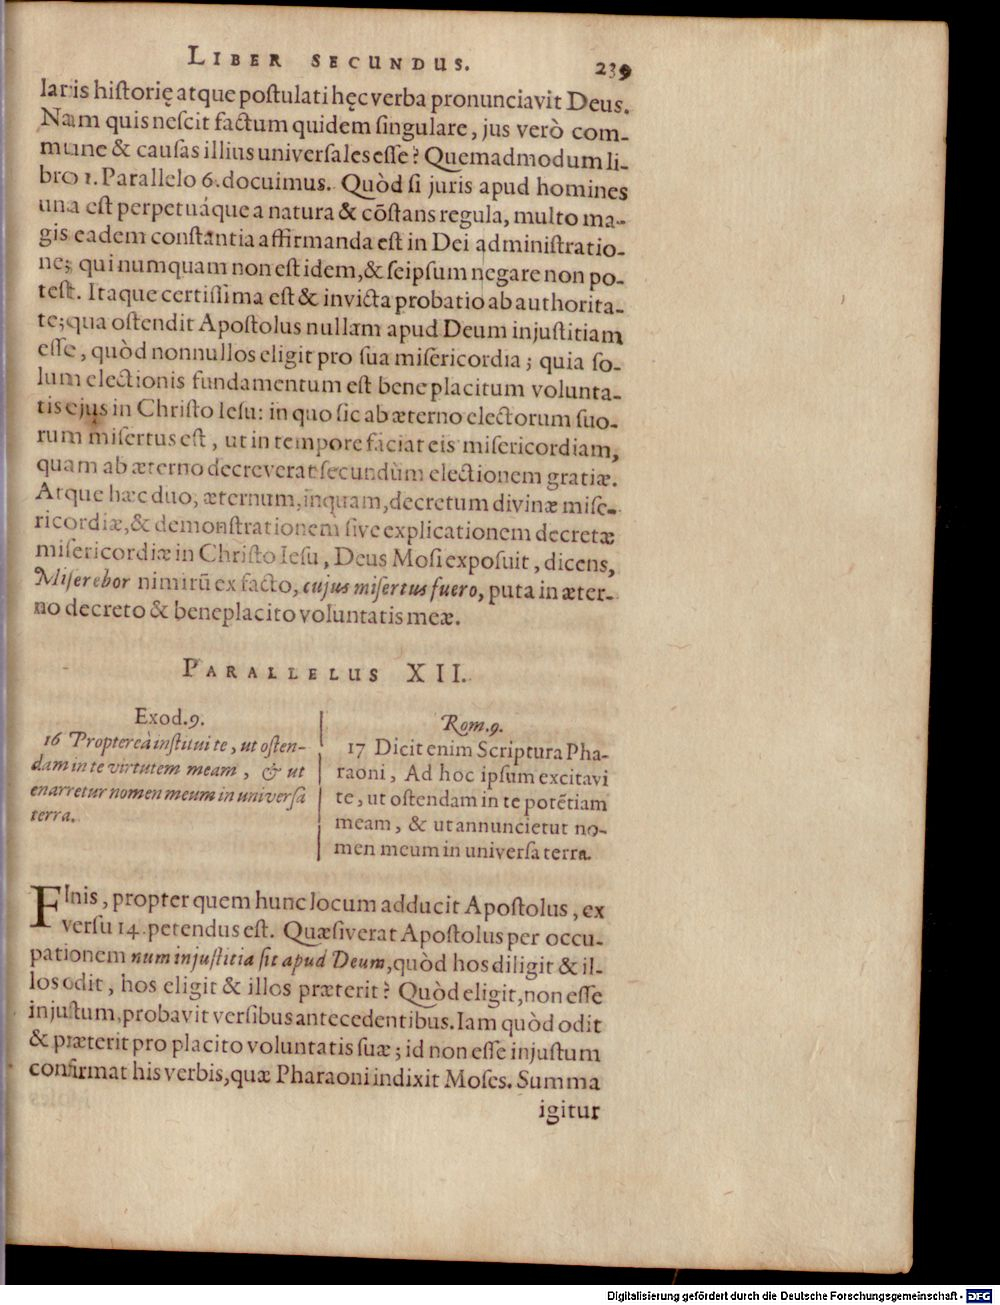 LIBER SECUNDUS. 239
laris historię atque postulati hęc verba pronunciavit Deus.
Nam quis nescit factum quidem singulare, jus verò com-
mune & causas illius universales esse? Quemadmodum li-
bro 1. Parallelo 6. docuimus. Quòd si juris apud homines
una est perpetuáque a natura & cõstans regula, multo ma-
gis eadem constantia affirmanda est in Dei administratio-
ne; qui numquam non est idem, & seipsum negare non po-
test. Itaque certissima est & invicta probatio ab authorita-
te; qua ostendit Apostolus nullam apud Deum injustitiam
esse, quòd nonnullos eligit pro sua misericordia; quia so-
lum electionis fundamentum est beneplacitum volunta-
tis ejus in Christo Iesu: in quo sic ab æterno electorum suo-
rum misertus est, ut in tempore faciat eis misericordiam,
quam ab æterno decreverat secundùm electionem gratiæ.
Atque hæc duo, æternum, inquam, decretum divinæ mise-
ricordiæ, & demonstrationem sive explicationem decretæ
misericordiæ in Christo Iesu, Deus Mosi exposuit, dicens,
Miserebor nimirũ ex facto, cujus misertus fuero, puta in æter-
no decreto & beneplacito voluntatis meæ.
PARALLELUS XII.
Exod. 9.
16 Proptereà institui te, ut osten-
dam in te virtutem meam, & ut
enarretur nomen meum in universa
terra.
Rom. 9.
17 Dicit enim Scriptura Pha-
raoni, Ad hoc ipsum excitavi
te, ut ostendam in te potẽtiam
meam, & ut annuncietut no-
men meum in universa terra.
FInis, propter quem hunc locum adducit Apostolus, ex
versu 14. petendus est. Quæsiverat Apostolus per occu-
pationem num injustitia sit apud Deum, quòd hos diligit & il-
los odit, hos eligit & illos præterit? Quòd eligit, non esse
injustum, probavit versibus antecedentibus. Iam quòd odit
& præterit pro placito voluntatis suæ; id non esse injustum
confirmat his verbis, quæ Pharaoni indixit Moses. Summa
igitur
Digitalisierung gefördert durch die Deutsche Forschungsgemeinschaft - DFG